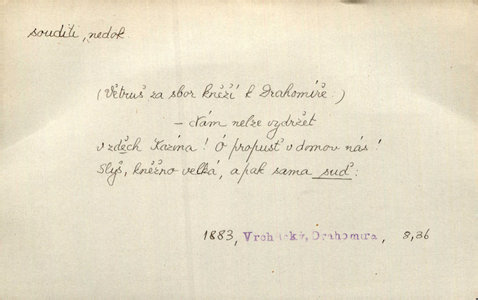 souditi, nedok.
(Větruš za sbor kněží k Drahomíře.)
– Nám nelze vydržet
v zdech Kazína! Ó propusť v domov nás!
Slyš, kněžno velká, a pak sama suď:
1883, Vrchlický, Drahomíra, 8,36